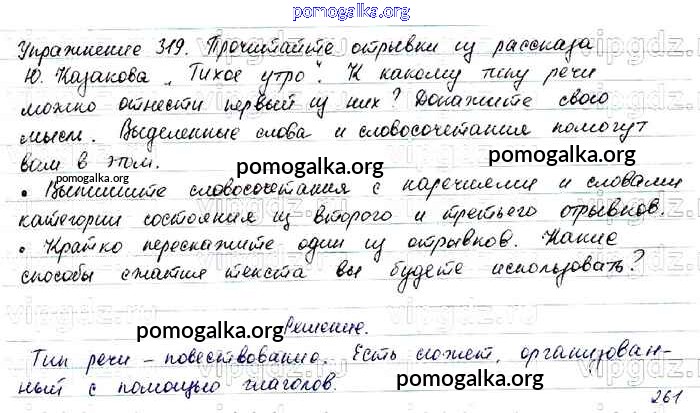 pomogalka.org
Упражнение 319. Прочитайте отрывки из рассказа
Ю. Казакова „Тихое утро". К какому типу речи
можно отнести первый из них? Докажите свою
мысль. Выделенные слова и словосочетания помогут
вам в этом.
pomogalka.org pomogalka.org pomogalka.org
• Выпишите словосочетания с наречиями и словами
категории состояния из второго и третьего отрывков.
• Кратко перескажите один из отрывков. Какие
способы сжатия текста вы будете использовать?
pomogalka.org Решение. pomogalka.org
Тип речи – повествование. Есть сюжет, организован-
ный с помощью глаголов.
pomogalka.org
261